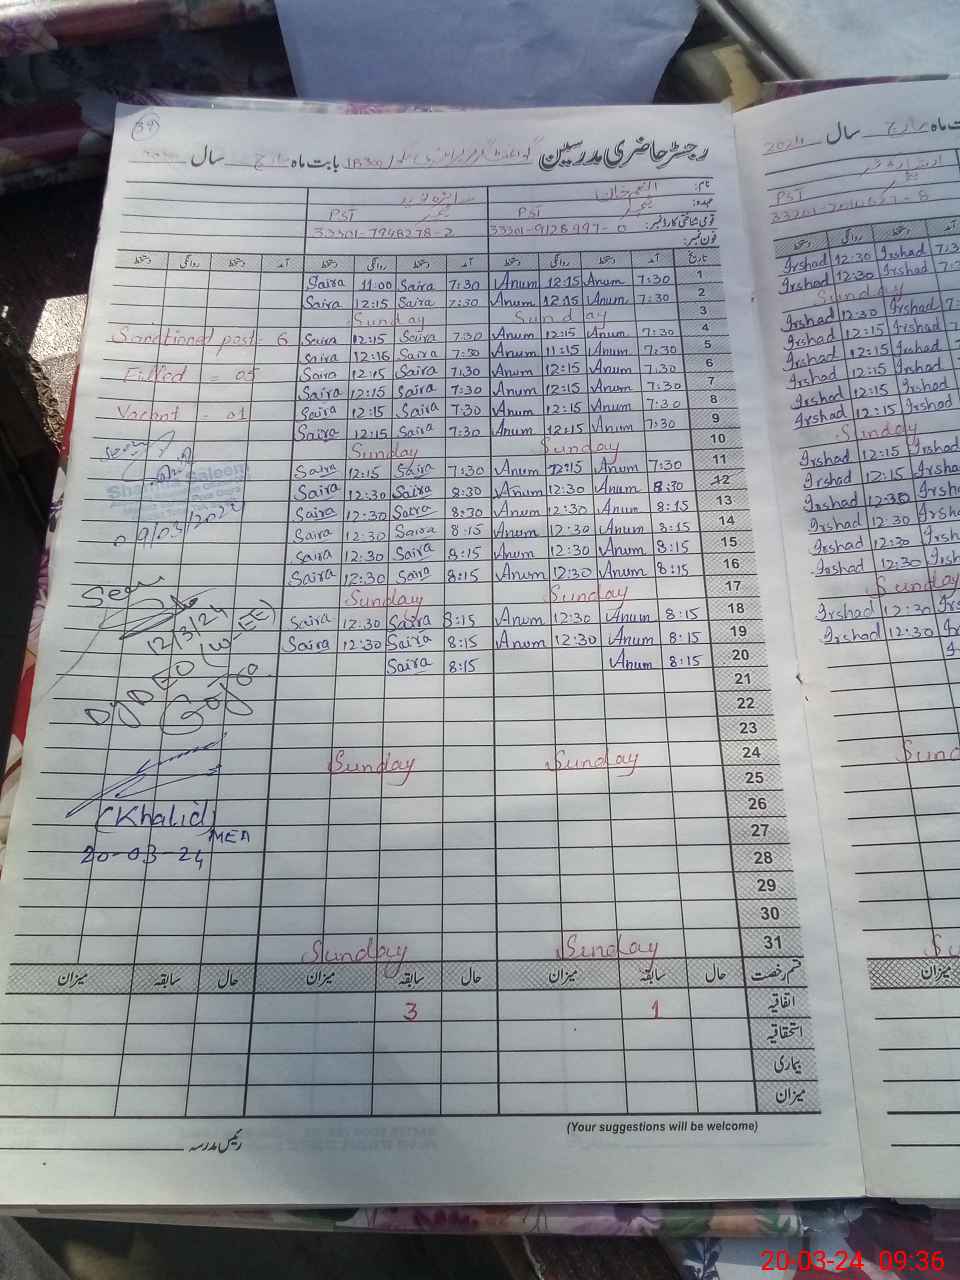 39
رجسٹر حاضری مدرسین
بابت ماہ مارچ سال
نام: انعم خان
عہدہ: ٹیچر PST ٹیچر PST
قومی شناختی کارڈ نمبر: 33301-9128997-0 33301-7948278-2
فون نمبر:
تاریخ آمد دستخط روانگی دستخط آمد دستخط روانگی دستخط آمد دستخط روانگی دستخط
Saira 11:00 Saira 7:30 Anum 12:15 Anum 7:30 1
Saira 12:15 Saira 7:30 Anum 12:15 Anum 7:30 2
Sunday Sunday 3
Sanctioned post = 6 Saira 12:15 Saira 7:30 Anum 12:15 Anum 7:30 4
Saira 12:16 Saira 7:30 Anum 11:15 Anum 7:30 5
Filled = 05 Saira 12:15 Saira 7:30 Anum 12:15 Anum 7:30 6
Saira 12:15 Saira 7:30 Anum 12:15 Anum 7:30 7
Vacant = 01 Saira 12:15 Saira 7:30 Anum 12:15 Anum 7:30 8
Saira 12:15 Saira 7:30 Anum 12:15 Anum 7:30 9
Sunday Sunday 10
Saira 12:15 Saira 7:30 Anum 12:15 Anum 7:30 11
Saira 12:30 Saira 8:30 Anum 12:30 Anum 8:30 12
Saira 12:30 Saira 8:30 Anum 12:30 Anum 8:15 13
Saira 12:30 Saira 8:15 Anum 12:30 Anum 8:15 14
Saira 12:30 Saira 8:15 Anum 12:30 Anum 8:15 15
Saira 12:30 Saira 8:15 Anum 12:30 Anum 8:15 16
Sunday Sunday 17
Saira 12:30 Saira 8:15 Anum 12:30 Anum 8:15 18
Saira 12:30 Saira 8:15 Anum 12:30 Anum 8:15 19
Saira 8:15 Anum 8:15 20
21
22
23
Sunday Sunday 24
25
26
27
28
29
30
Sunday Sunday 31
Seen
Saleem
Seen
12/3/24
Dy DEO (W-EE)
(Khalid)
MEA
20-03-24
قسم رخصت حال سابقہ میزان حال سابقہ میزان حال سابقہ میزان
اتفاقیہ 1 3
استحقاقیہ
بیماری
میزان
(Your suggestions will be welcome)
رئیس مدرسہ
2024 سال مارچ ماہ
PST
دستخط روانگی دستخط آمد
Irshad 12:30 Irshad 7:3
Irshad 12:30 Irshad
Sunday
Irshad 12:30 Irshad
Irshad 12:15 Irshad
Irshad 12:15 Irshad
Irshad 12:15 Irshad
Irshad 12:15 Irshad
Irshad 12:15 Irshad
Sunday
Irshad 12:15 Irshad
Irshad 12:15 Irshad
Irshad 12:30 Irshad
Irshad 12:30 Irsh
Irshad 12:30 Irsh
Irshad 12:30 Irsh
Sunday
Irshad 12:30 Irsh
Irshad 12:30 Irs
Sund
میزان
20-03-24 09:36